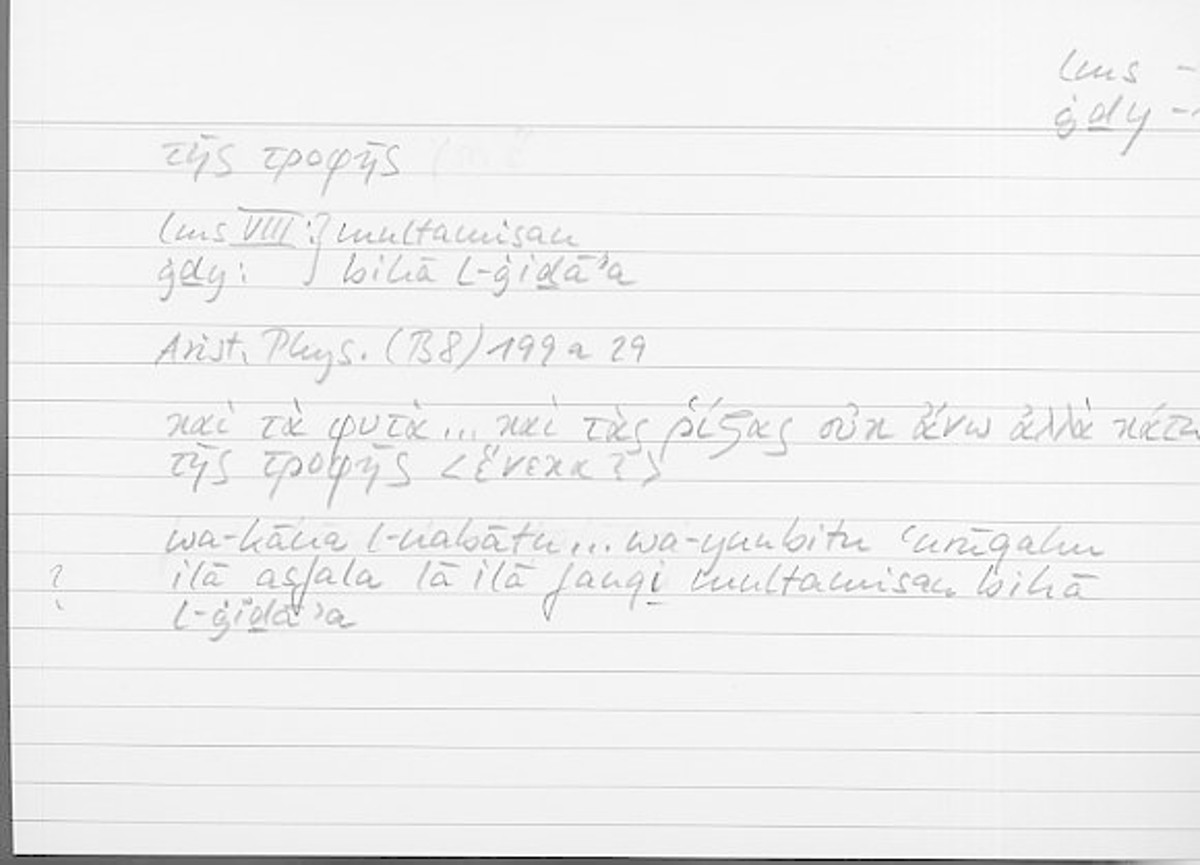 lms –
ġḏy –
τῆς τροφῆς
lms VIII :} multamisan
ġḏy : } bihā l-ġiḏāʾa
Arist. Phys. (B8) 199 a 29
καὶ τὰ φυτὰ ... καὶ τὰς ῥίζας οὐκ ἄνω ἀλλὰ κάτω
τῆς τροφῆς <ἕνεκα?>
wa-kāna l-nabātu ... wa-yunbitu ʿurūqahu
? ilā asfala lā ilā fauqi multamisan bihā
l-ġiḏāʾa